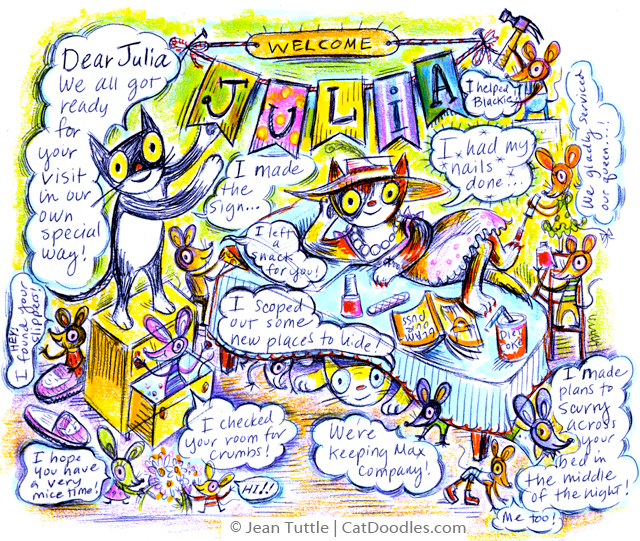 WELCOME
JULIA
Dear Julia
We all got
ready
for
your
visit
in our
own
special
way!
I made
the
sign...
I helped
Blackie!
I had my
nails
done...
We gladly serviced
our queen...!
I left
a
snack
for you!
I scoped
out some
new places to hide!
GLAMOUR
PUSS
DIET
COKE
HEY,
I found your
slippers!
I checked
your room for
crumbs!
We're
keeping Max
company!
I made
plans to
scurry
across
your
bed in
the middle
of the night!
Me too!
I hope
you have
a very
mice time!
HI!!
© Jean Tuttle | CatDoodles.com